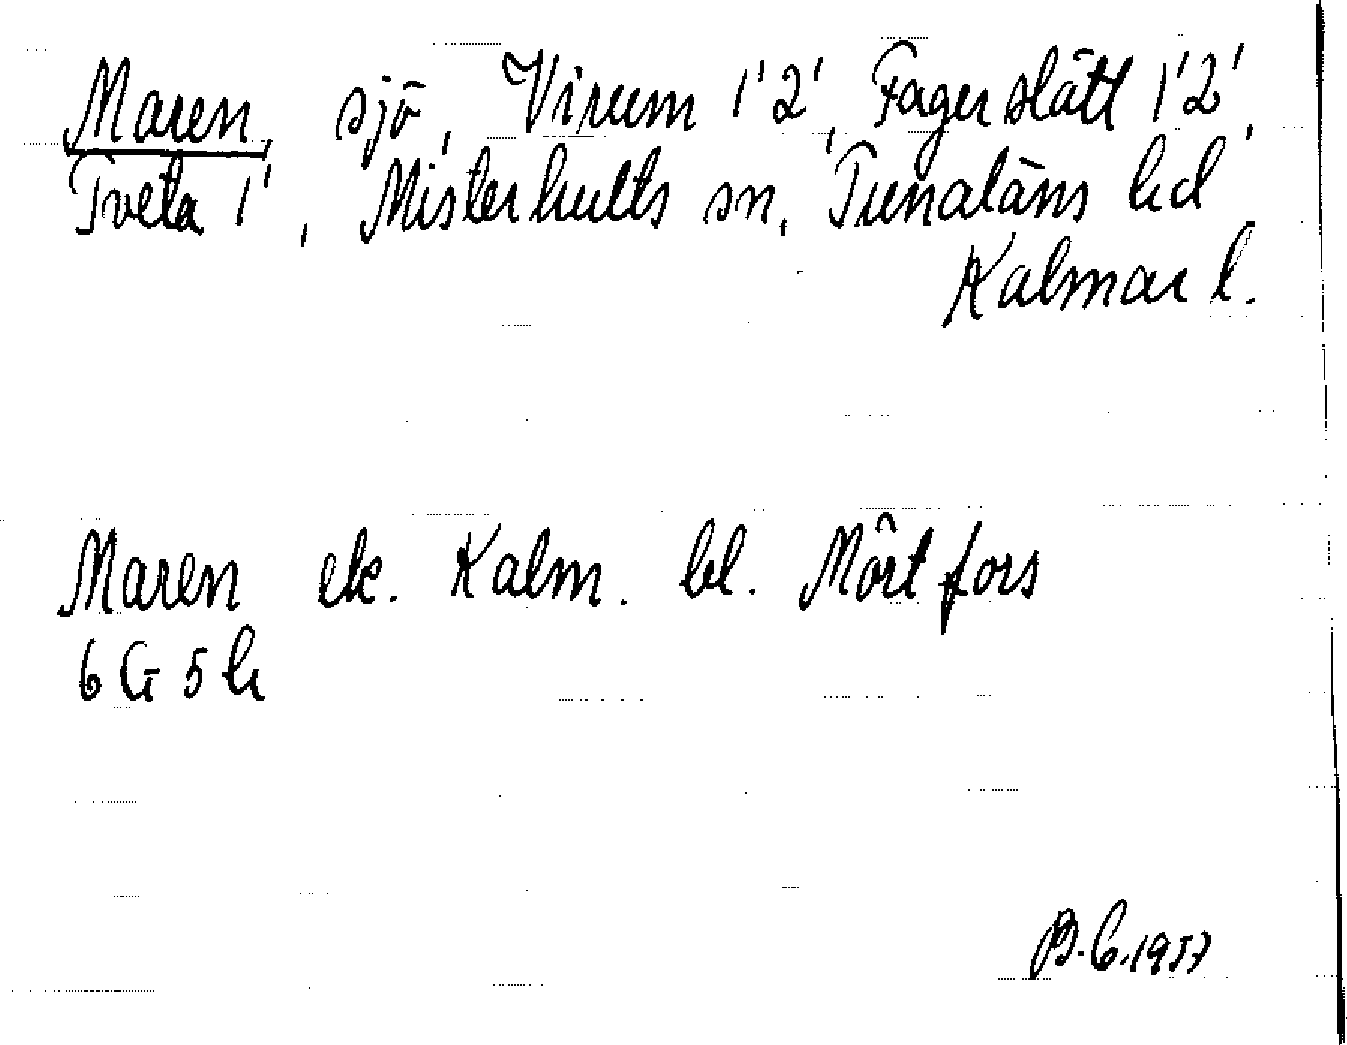 Maren, sjö, Virum 1'2', Fagerslätt 1'2',
Tveta 1', Misterhults sn, Tunaläns hd
Kalmar l.
Maren ek. Kalm. bl. Mörtfors
6 G 5 h
B.C. 1957